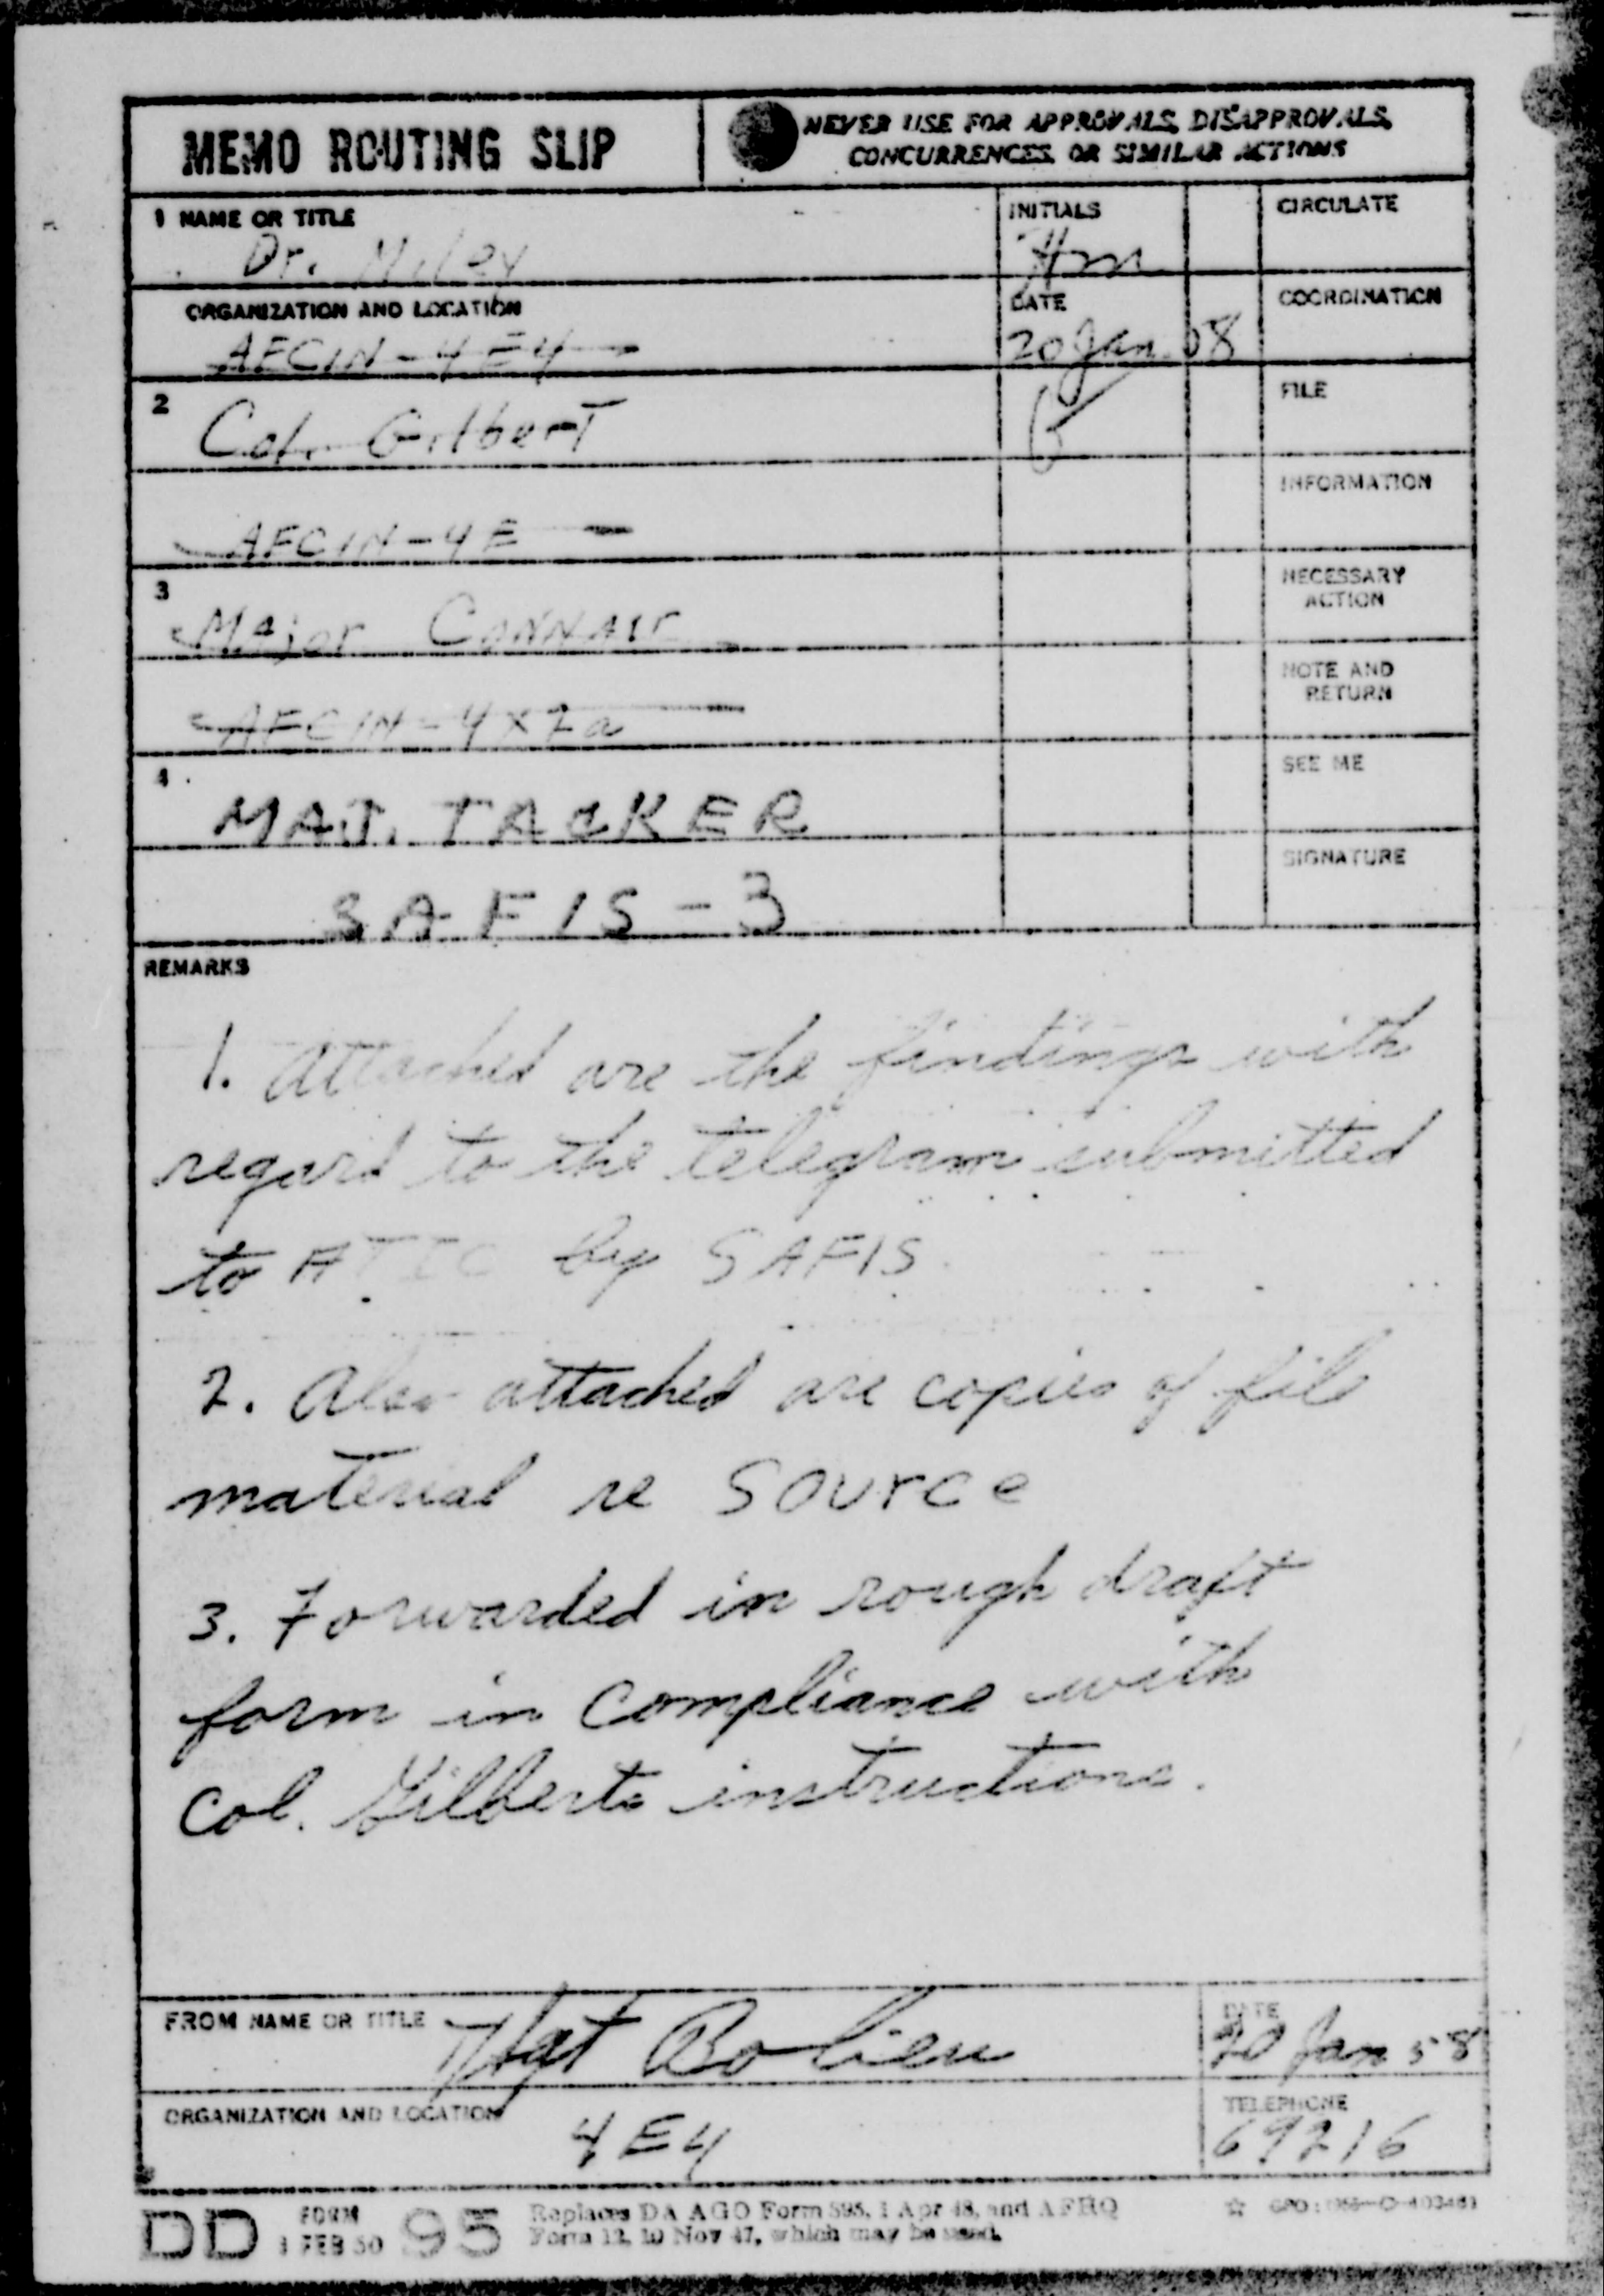 MEMO ROUTING SLIP
NEVER USE FOR APPROVALS, DISAPPROVALS,
CONCURRENCES, OR SIMILAR ACTIONS
1 NAME OR TITLE
Dr. Miley
INITIALS
Hm
CIRCULATE
ORGANIZATION AND LOCATION
AFCIN-4E4
DATE
20 Jan 58
COORDINATION
2
Col. Gilbert
FILE
AFCIN-4E
INFORMATION
3
Major Connair
NECESSARY
ACTION
AFCIN-4X7a
NOTE AND
RETURN
4
MAJ. TACKER
SEE ME
SAFIS-3
SIGNATURE
REMARKS
1. Attached are the findings with
regard to the telegram submitted
to ATIC by SAFIS.
2. Also attached are copies of file
material re Source
3. Forwarded in rough draft
form in compliance with
Col. Gilberts instructions.
FROM NAME OR TITLE
T/Sgt Bolieu
DATE
20 Jan 58
ORGANIZATION AND LOCATION
4E4
TELEPHONE
69216
DD FORM 95
1 FEB 50
Replaces DA AGO Form 895, 1 Apr 48, and AFHQ
Form 12, 10 Nov 47, which may be used.